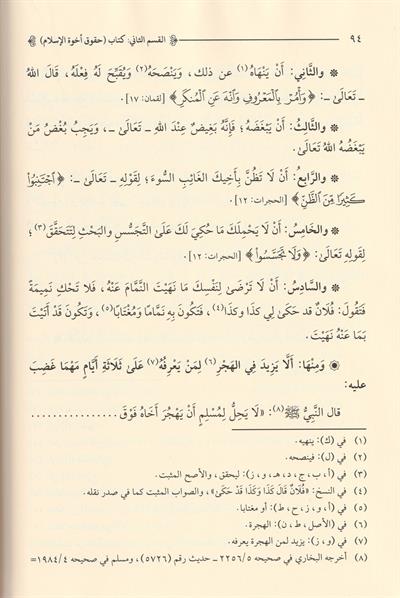 ٩٤ القسم الثاني: كتاب (حقوق أخوة الإسلام)
* والثَّانِي: أَنْ يَنْهَاهُ(١) عن ذلك، وَيَنْصَحَهُ(٢) وَيُقَبِّحَ لَهُ فِعْلَهُ، قَالَ اللهُ
ـ تَعَالَى ـ: ﴿وَأْمُرْ بِالْمَعْرُوفِ وَانْهَ عَنِ الْمُنكَرِ﴾ [لقمان: ١٧].
* والثَّالِثُ: أَنْ يَبْغَضَهُ؛ فَإِنَّهُ بَغِيضٌ عِنْدَ اللهِ ـ تَعَالَى ـ، وَيَجِبُ بُغْضُ مَنْ
يَبْغَضُهُ اللهُ تَعَالَى.
* والرَّابِعُ: أَنْ لَا تَظُنَّ بِأَخِيكَ الغَائِبِ السُّوءَ؛ لِقَوْلِهِ ـ تَعَالَى ـ: ﴿اجْتَنِبُوا
كَثِيرًا مِّنَ الظَّنِّ﴾ [الحجرات: ١٢].
* والخَامِسُ: أَنْ لَا يَحْمِلَكَ مَا حُكِيَ لَكَ عَلَى التَّجَسُّسِ والبَحْثِ لِتَتَحَقَّقَ(٣)؛
لِقَولِهِ تَعَالَى: ﴿وَلَا تَجَسَّسُوا﴾ [الحجرات: ١٢].
* والسَّادِسُ: أَنْ لَا تَرْضَى لِنَفْسِكَ مَا نَهَيْتَ النَّمَّامَ عَنْهُ، فَلَا تَحْكِ نَمِيمَةً
فَتَقُولَ: فُلَانٌ قَد حَكَى لِي كذا وكذا(٤)، فَتَكُونَ بِهِ نَمَّامًا وَمُغْتَابًا(٥)، وَتَكُونَ قَدْ أَتَيْتَ
بِمَا عَنْهُ نَهَيْتَ.
◉ وَمِنْهَا: أَلَّا يَزِيدَ فِي الهَجْرِ(٦) لِمَنْ يَعْرِفُهُ(٧) عَلَى ثَلَاثَةِ أَيَّامٍ مَهْمَا غَضِبَ
عليه:
قال النَّبِيُّ ﷺ(٨): «لَا يَحِلُّ لِمُسْلِمٍ أَنْ يَهْجُرَ أَخَاهُ فَوْقَ ................
(١) في (ك): ينهيه.
(٢) في (ل): فينصحه.
(٣) في (أ، ب، ج، د، هـ، و، ز): ليحقق، والأصح المثبت.
(٤) في النسخ: «فُلَانٌ قَالَ كَذَا وَكَذَا قَدْ حَكَى»، والصواب المثبت كما في صدر نقله.
(٥) في (أ، و، ز، ح، ط): أو مغتابا.
(٦) في (الأصل، ط، ن): الهجرة.
(٧) في (و، ز): يزيد لمن الهجرة يعرفه.
(٨) أخرجه البخاري في صحيحه ٢٢٥٦/٥ ـ حديث رقم (٥٧٢٦)، ومسلم في صحيحه ١٩٨٤/٤=